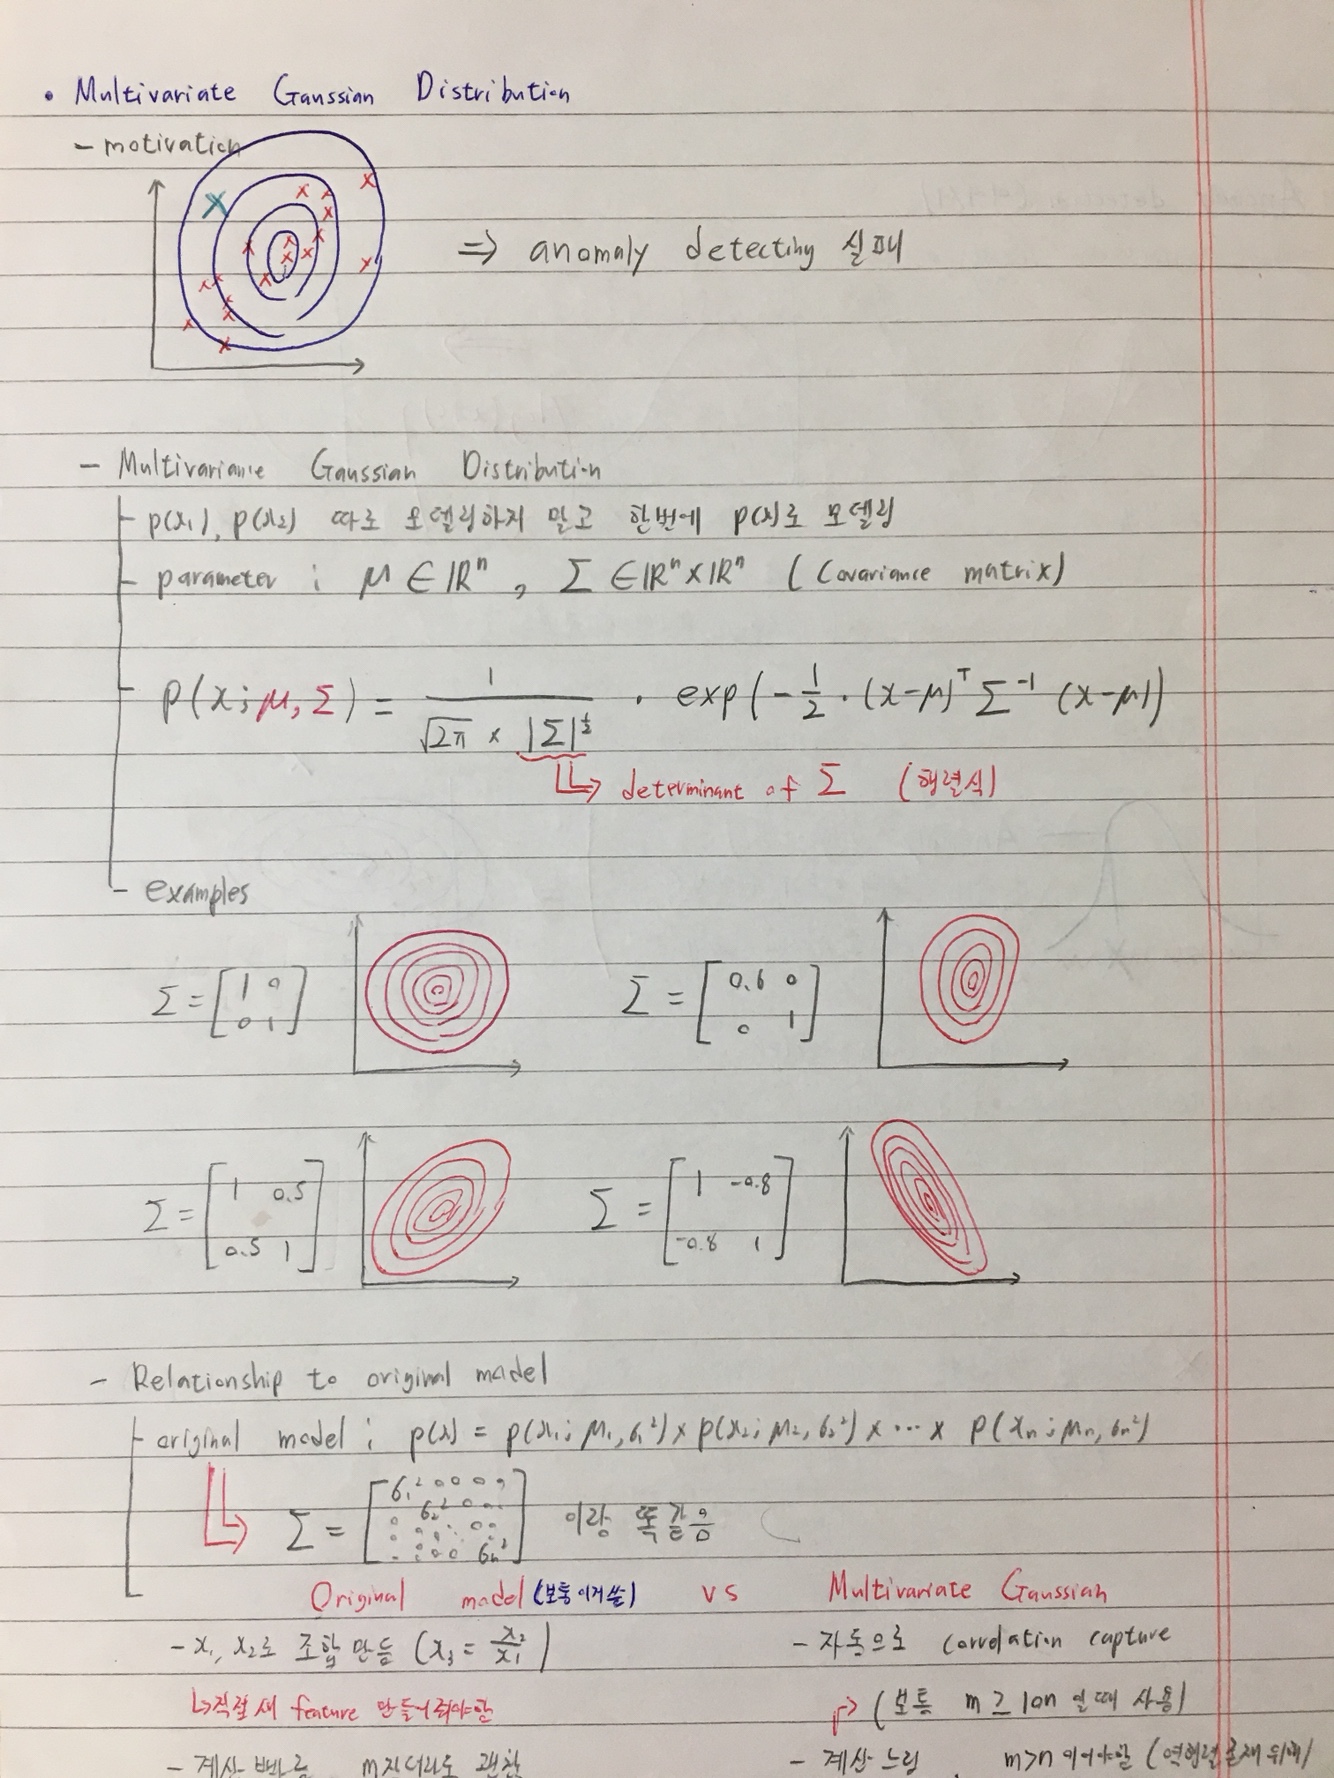 • Multivariate Gaussian Distribution
- motivation
⇒ anomaly detecting 실패
- Multivariance Gaussian Distribution
p(x₁), p(x₂) 따로 모델링하지 말고 한번에 p(x)로 모델링
parameter : μ ∈ ℝⁿ , Σ ∈ ℝⁿ×ℝⁿ (Covariance matrix)
P(x; μ, Σ) = 1 / (√2π × |Σ|^½) · exp(-½ · (x-μ)ᵀ Σ⁻¹ (x-μ))
↳ determinant of Σ (행렬식)
examples
Σ = [1 0; 0 1]   Σ = [0.6 0; 0 1]
Σ = [1 0.5; 0.5 1]   Σ = [1 -0.8; -0.8 1]
- Relationship to original model
original model : p(x) = p(x₁; μ₁, σ₁²) × p(x₂; μ₂, σ₂²) × ··· × p(xₙ; μₙ, σₙ²)
↳ Σ = [σ₁² 0 0 0 0; σ₂² 0 0; σₙ²] 이랑 똑같음
Original model (보통 이거 씀) vs Multivariate Gaussian
- x₁, x₂로 조합 만듦 (x₃ = x₂/x₁)   - 자동으로 correlation capture
↳ 직접 새 feature 만들어줘야함   (보통 m ≥ 10n 일 때 사용)
- 계산 빠름 m 작더라도 괜찮   - 계산 느림, m>n 이어야함 (역행렬 존재 위해)